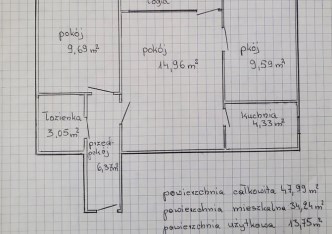 logia
pokój
9,69 m²
pokój
14,96 m²
pkój
9,59 m²
łazienka
3,05 m²
przed-
pokój
6,37 m²
kuchnia
4,33 m²
powierzchnia całkowita 47,99 m²
powierzchnia mieszkalna 34,24 m²
powierzchnia użytkowa 13,75 m²